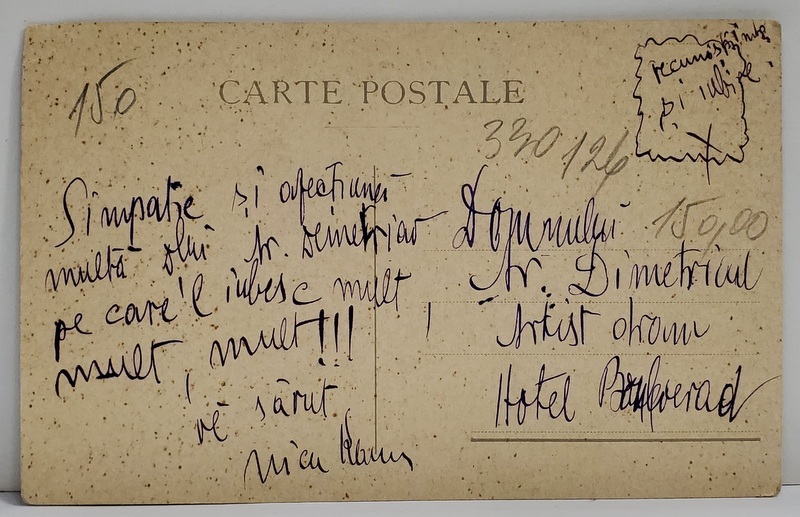 150
CARTE POSTALE
recunoștință
și iubire.
330 126
Simpatie și afecțiună
multă dlui Ar. Demetriad
pe care'l iubesc mult
mult, mult!!!
vĕ sărut
Nicu
Domnului
150,00
Ar. Dimetriad
Artist dram
Hotel Boulevard